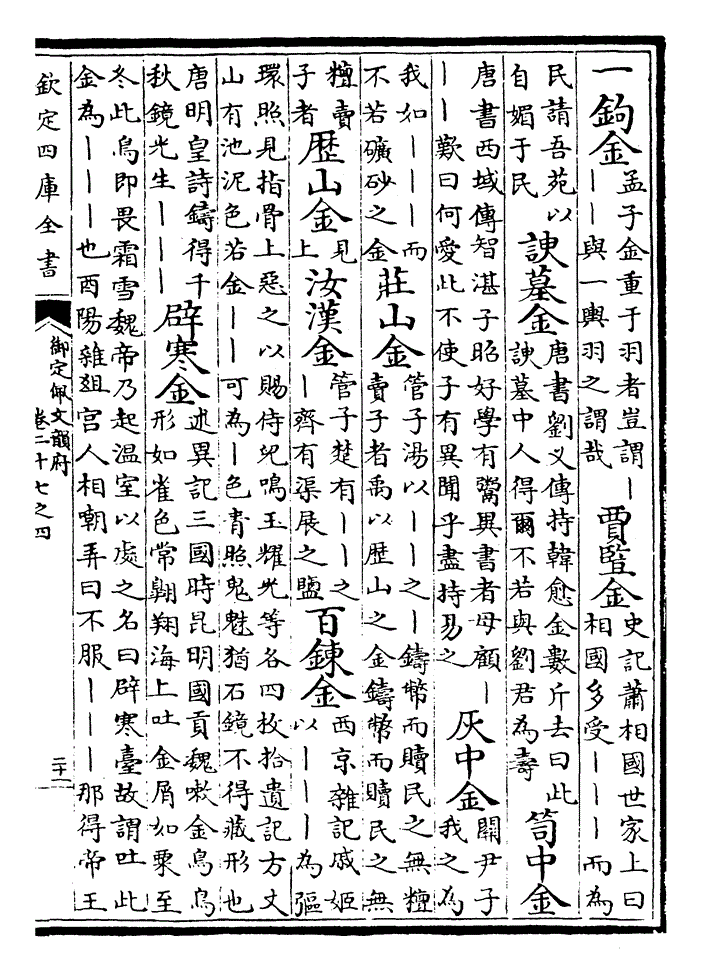 一鉤金孟子金重于羽者豈謂丨丨丨與一輿羽之謂哉賈豎金史記蕭相國世家上曰相國多受丨丨丨而為
民請吾苑以自媚于民諛墓金唐書劉义傳持韓愈金數斤去曰此諛墓中人得爾不若與劉君為壽笥中金
唐書西域傳智湛子昭好學有鬻異書者母顧丨丨丨歎曰何愛此不使子有異聞乎盡持易之灰中金關尹子我之為
我如丨丨丨而不若礦砂之金莊山金管子湯以丨丨之丨鑄幣而贖民之無𥼷賣子者禹以歴山之金鑄幣而贖民之無
𥼷賣子者歴山金見上汝漢金管子楚有丨丨之丨齊有渠展之鹽百鍊金西京雜記戚姬以丨丨丨為彄
環照見指骨上惡之以賜侍兒鳴玉耀光等各四枚拾遺記方丈山有池泥色若金丨丨可為丨色青照鬼魅猶石鏡不得藏形也
唐明皇詩鑄得千秋鏡光生丨丨丨辟寒金述異記三國時昆明國貢魏嗽金鳥鳥形如雀色常翺翔海上吐金屑如粟至
冬此鳥即畏霜雪魏帝乃起溫室以處之名曰辟寒臺故謂吐此金為丨丨丨也酉陽雜俎宫人相嘲弄曰不服丨丨丨那得帝王
欽定四庫全書
御定佩文韻府
卷二十七之四